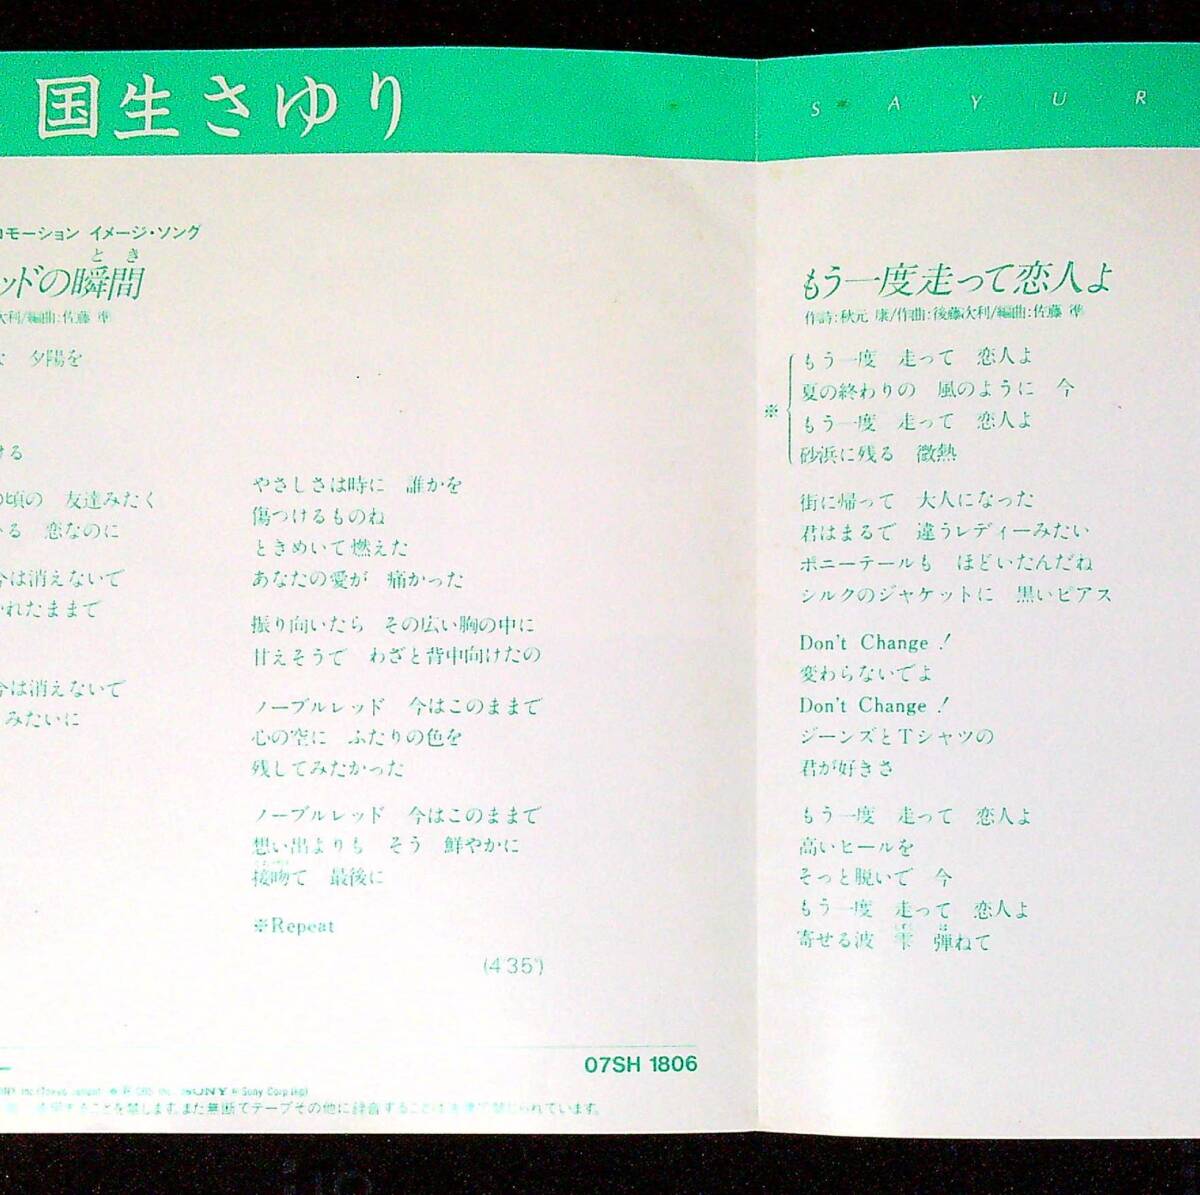 国生さゆり
SAYUR
ロモーション イメージ・ソング
とき
ッドの瞬間
次利/編曲:佐藤 準
夕陽を
ける
の頃の 友達みたく
いる 恋なのに
今は消えないで
かれたままで
今は消えないで
みたいに
やさしさは時に 誰かを
傷つけるものね
ときめいて燃えた
あなたの愛が 痛かった
振り向いたら その広い胸の中に
甘えそうで わざと背中向けたの
ノーブルレッド 今はこのままで
心の空に ふたりの色を
残してみたかった
ノーブルレッド 今はこのままで
想い出よりも そう 鮮やかに
接吻て 最後に
※Repeat
(4'35")
もう一度走って恋人よ
作詩:秋元 康/作曲:後藤次利/編曲:佐藤 準
※
もう一度 走って 恋人よ
夏の終わりの 風のように 今
もう一度 走って 恋人よ
砂浜に残る 微熱
街に帰って 大人になった
君はまるで 違うレディーみたい
ポニーテールも ほどいたんだね
シルクのジャケットに 黒いピアス
Don't Change!
変わらないでよ
Don't Change!
ジーンズとTシャツの
君が好きさ
もう一度 走って 恋人よ
高いヒールを
そっと脱いで 今
もう一度 走って 恋人よ
しずく は
寄せる波 雫 弾ねて
07SH 1806
Sony Corp
ることを禁じます。また無断でテープその他に録音することは法律で禁じられています。